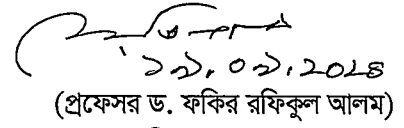 ১৯.০৯.২০২৪
(প্রফেসর ড. ফকির রফিকুল আলম)